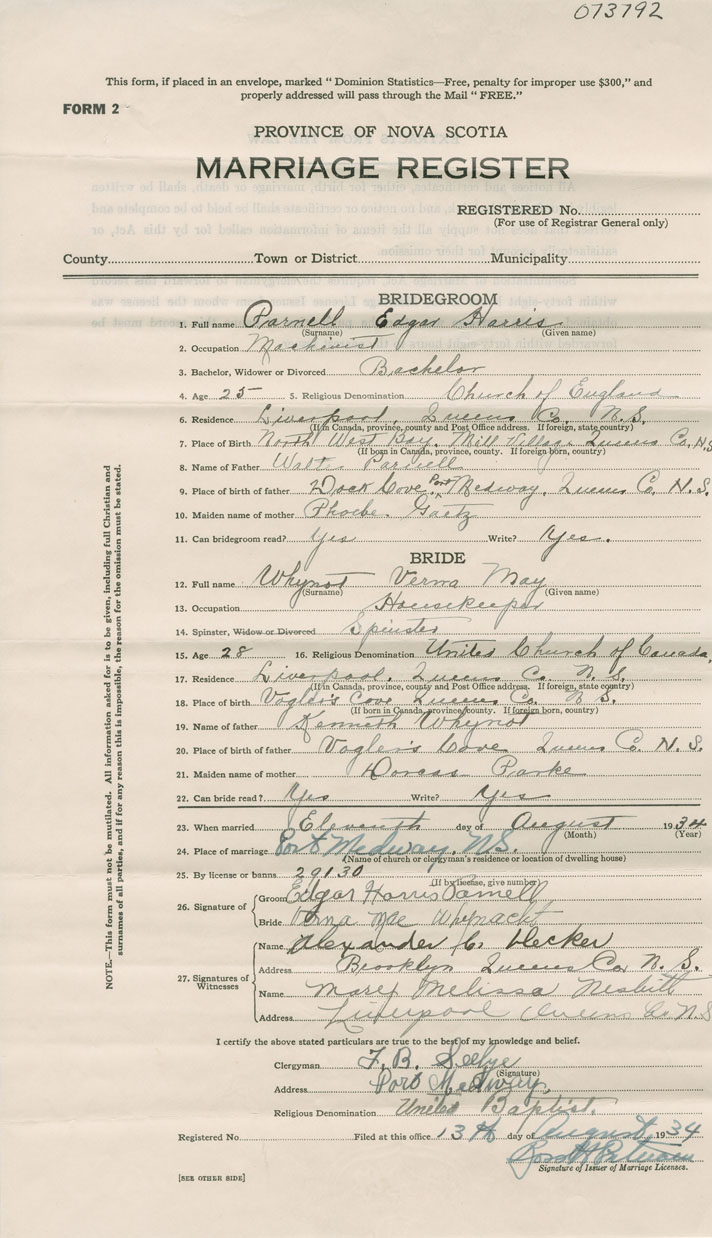 073792
This form, if placed in an envelope, marked " Dominion Statistics—Free, penalty for improper use $300," and
properly addressed will pass through the Mail " FREE."
FORM 2
PROVINCE OF NOVA SCOTIA
MARRIAGE REGISTER
REGISTERED No.
(For use of Registrar General only)
County Town or District Municipality
BRIDEGROOM
1. Full name Parnell Edgar Harris
(Surname) (Given name)
2. Occupation Machinist
3. Bachelor, Widower or Divorced Bachelor
4. Age 25 5. Religious Denomination Church of England
6. Residence Liverpool, Queens Co. N.S.
(If in Canada, province, county and Post Office address. If foreign, state country)
7. Place of Birth North West Bay, Mill Village Queens Co. N.S
(If born in Canada, province, county. If foreign born, country)
8. Name of Father Walter Parnell
9. Place of birth of father Dock Cove Port Medway, Queens Co. N.S.
10. Maiden name of mother Phoebe Gaetz
11. Can bridegroom read? Yes Write? Yes.
BRIDE
12. Full name Whynot Verna May
(Surname) (Given name)
13. Occupation Housekeeper
14. Spinster, Widow or Divorced Spinster
15. Age 28 16. Religious Denomination United Church of Canada,
17. Residence Liverpool, Queens Co. N.S.
(If in Canada, province, county and Post Office address. If foreign, state country)
18. Place of birth Vogler's Cove Queens Co. N.S.
(If born in Canada, province, county. If foreign born, country)
19. Name of father Kenneth Whynot
20. Place of birth of father Vogler's Cove Queens Co. N.S.
21. Maiden name of mother Dorcas Parke
22. Can bride read? Yes Write? Yes
23. When married Eleventh day of August 1934
(Month) (Year)
24. Place of marriage Port Medway, N.S.
(Name of church or clergyman's residence or location of dwelling house)
25. By license or banns 29130
(If by license, give number)
26. Signature of Groom Edgar Harris Parnell
Bride Verna Mae Whynacht
27. Signatures of Witnesses
Name Alexander C. Decker
Address Brooklyn Queens Co. N.S.
Name Mary Melissa Nesbitt
Address Liverpool Queens Co. N.S
I certify the above stated particulars are true to the best of my knowledge and belief.
Clergyman F. B. Seelye
(Signature)
Address Port Medway,
Religious Denomination United Baptist.
Registered No. Filed at this office 13th day of August 1934
Signature of Issuer of Marriage Licenses.
[SEE OTHER SIDE]
NOTE.—This form must not be mutilated. All information asked for is to be given, including full Christian and
surnames of all parties, and if for any reason this is impossible, the reason for the omission must be stated.